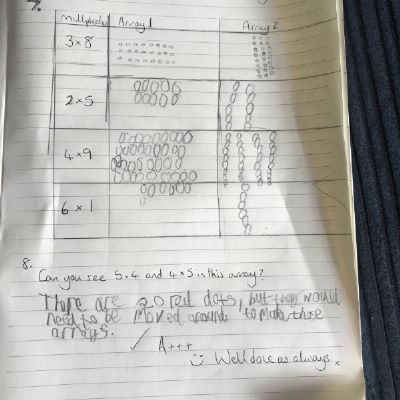 7.
Multiplication Array 1 Array 2
3 x 8
2 x 5
4 x 9
6 x 1
8.
Can you see 5 x 4 and 4 x 5 in this array?
There are 20 red dots, but they would
need to be moved around to make those
arrays.
A+++
Well done as always.